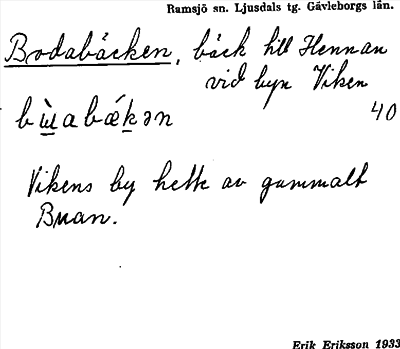 Ramsjö sn. Ljusdals tg. Gävleborgs län.
Bodabäcken, bäck till Hennan
vid byn Viken
bùabǽkən 40
Vikens by hette av gammalt
Buan.
Erik Eriksson 1933